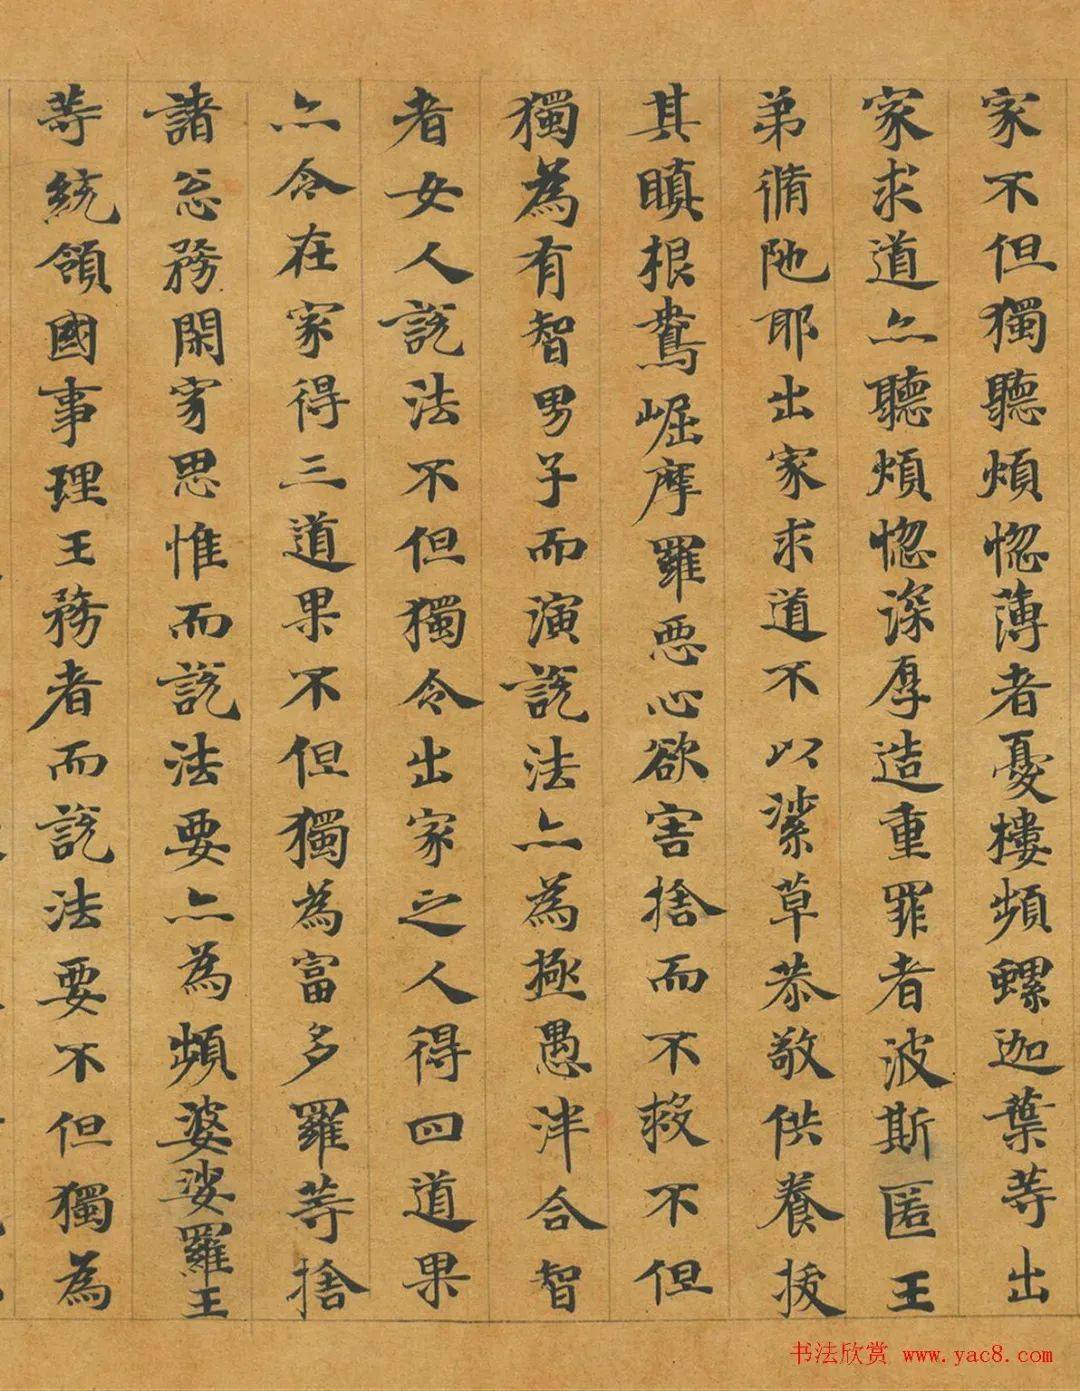 家不但獨聽煩惚薄者憂樓頻螺迦葉等出
家求道亦聽煩惚深厚造重罪者波斯匿王
弟脩陁耶出家求道不以潔草恭敬供養拔
其瞋根鴦崛摩羅惡心欲害捨而不救不但
獨為有智男子而演說法亦為極愚泮合智
者女人說法不但獨令出家之人得四道果
亦令在家得三道果不但獨為富多羅等捨
諸忩務閑穷思惟而說法要亦為頻婆娑羅王
等統領國事理王務者而說法要不但獨為
书法欣赏 www.yac8.com